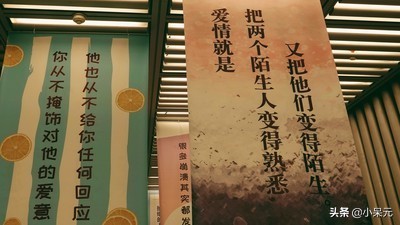 你从不掩饰对他的爱意
他也从不给你任何回应
很多崩溃其实都发
爱情就是
把两个陌生人变得熟悉
又把他们变得陌生
头条 @小呆元